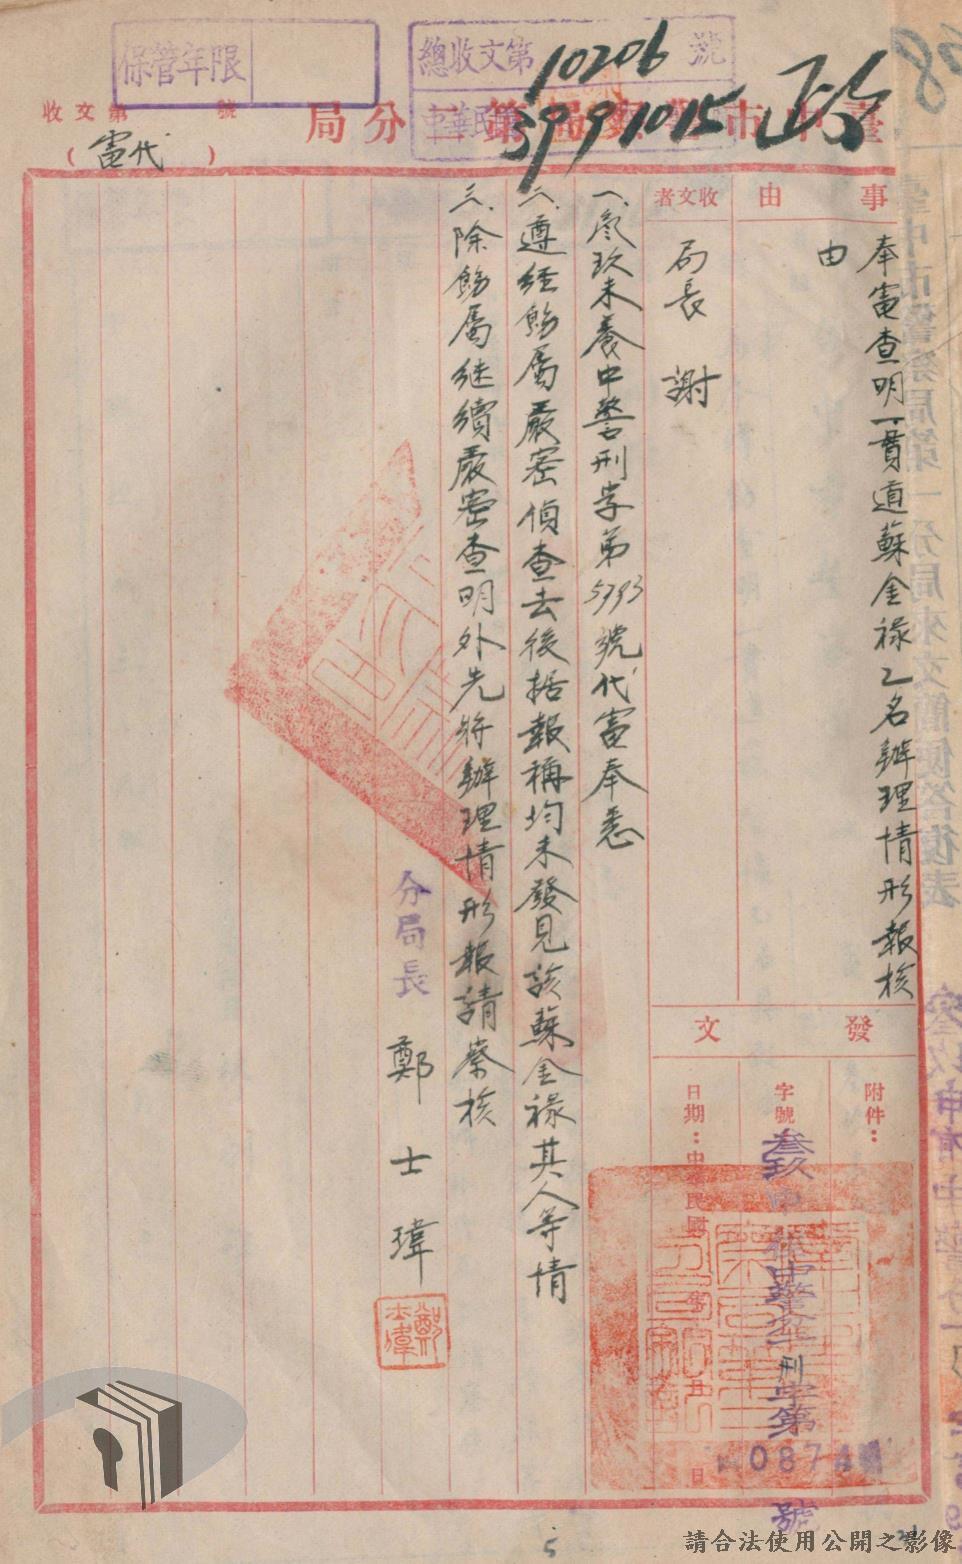 保管年限
總收文第10206號
39991015
臺中市警察局第一分局
收文第 號
(代電)
事由
奉電查明一貫道蘇金祿乙名辦理情形報核
由
收文者
局長 謝
一、叁玖未養中警刑字第5793號代電奉悉
二、遵經飭屬嚴密偵查去後据報稱均未發見該蘇金祿其人等情
三、除飭屬继續嚴密查明外先將辦理情形報請察核
分局長 鄭士瑋
發文
附件：
字號
叁玖申 中警 刑字第0874 號
日期：中華民國 日
5
請合法使用公開之影像